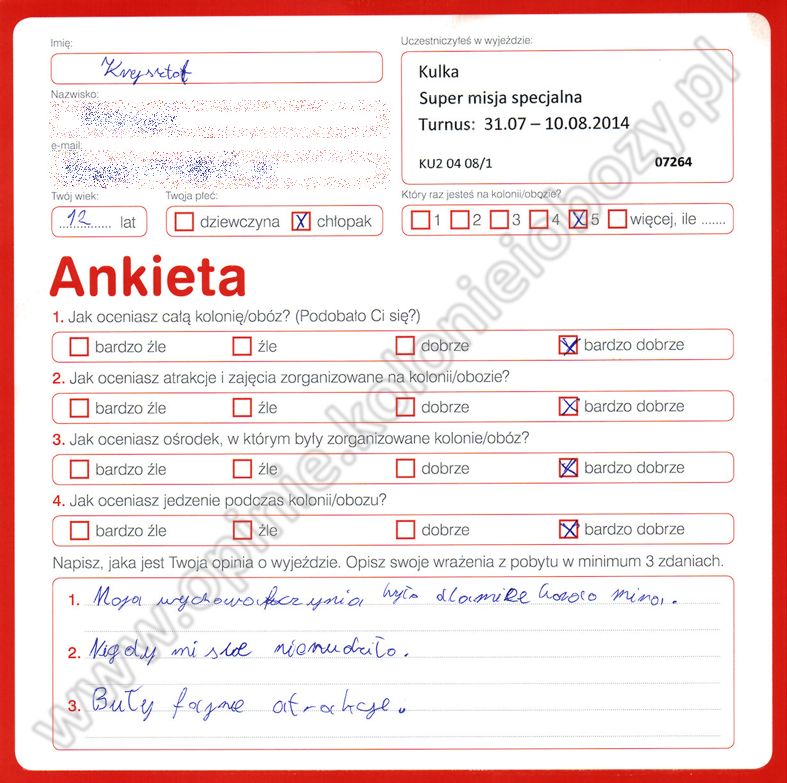 Imię:
Krzysztof
Uczestniczyłeś w wyjeździe:
Kulka
Super misja specjalna
Turnus: 31.07 – 10.08.2014
KU2 04 08/1 07264
Nazwisko:
e-mail:
Twój wiek:
12 lat
Twoja płeć:
dziewczyna X chłopak
Który raz jesteś na kolonii/obozie?
1 2 3 4 X 5 więcej, ile .......
Ankieta
1. Jak oceniasz całą kolonię/obóz? (Podobało Ci się?)
bardzo źle źle dobrze X bardzo dobrze
2. Jak oceniasz atrakcje i zajęcia zorganizowane na kolonii/obozie?
bardzo źle źle dobrze X bardzo dobrze
3. Jak oceniasz ośrodek, w którym były zorganizowane kolonie/obóz?
bardzo źle źle dobrze X bardzo dobrze
4. Jak oceniasz jedzenie podczas kolonii/obozu?
bardzo źle źle dobrze X bardzo dobrze
Napisz, jaka jest Twoja opinia o wyjeździe. Opisz swoje wrażenia z pobytu w minimum 3 zdaniach.
1. Moja wychowawczynia była dlamnie miła.
2. Nigdy mi sie nienudziło.
3. Buły fajne atrakcje.
www.opinie.kolonieiobozy.pl